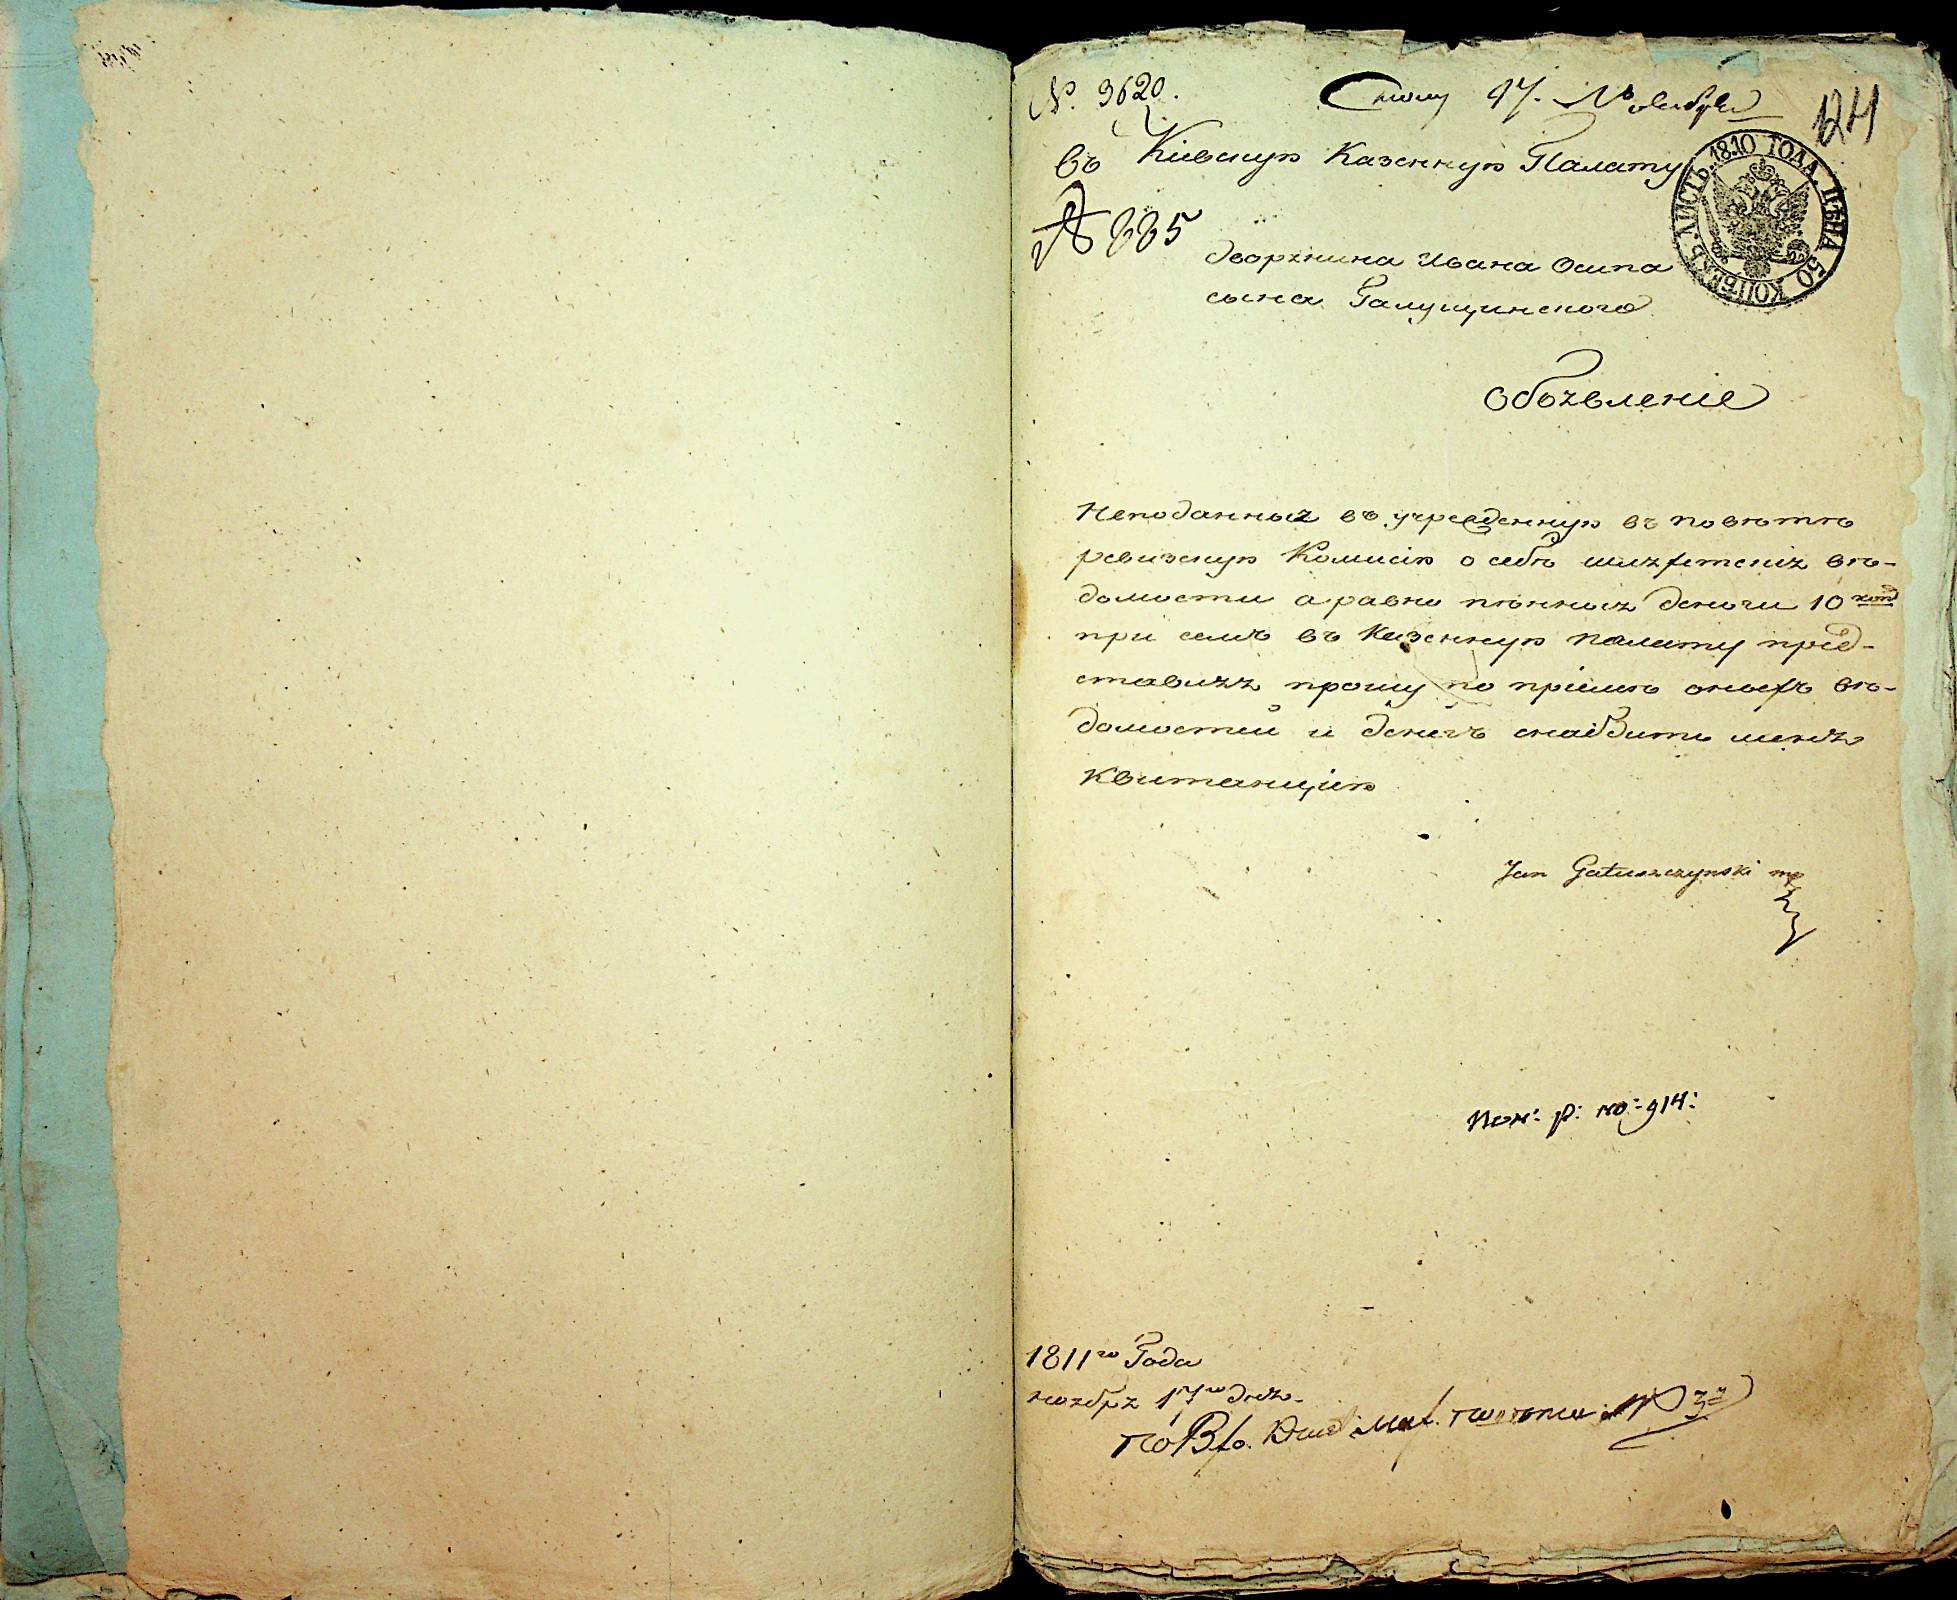 №. 3620.
17. Ноября
124
въ Кіевскую Казенную Палату
ЛИСТЪ. 1810 ГОДА. ЦѢНА 50 КОПѢЕКЪ.
885
дворянина Ивана Осипа
сына Галущинского
Обьявленіе
Неподанныя въ учрежденную въ повѣтѣ
ревизскую Комисію о себѣ шляхетскія вѣ-
домости а равно пѣнныя деньги 10 коп
при семъ въ Казенную палату пред-
ставляя прошу по пріемѣ оныхъ вѣ-
домостей и денегъ снабдить меня
квитанціею
Jan Gałuszczynski mp
914:
1811го Года
ноября 17го дня